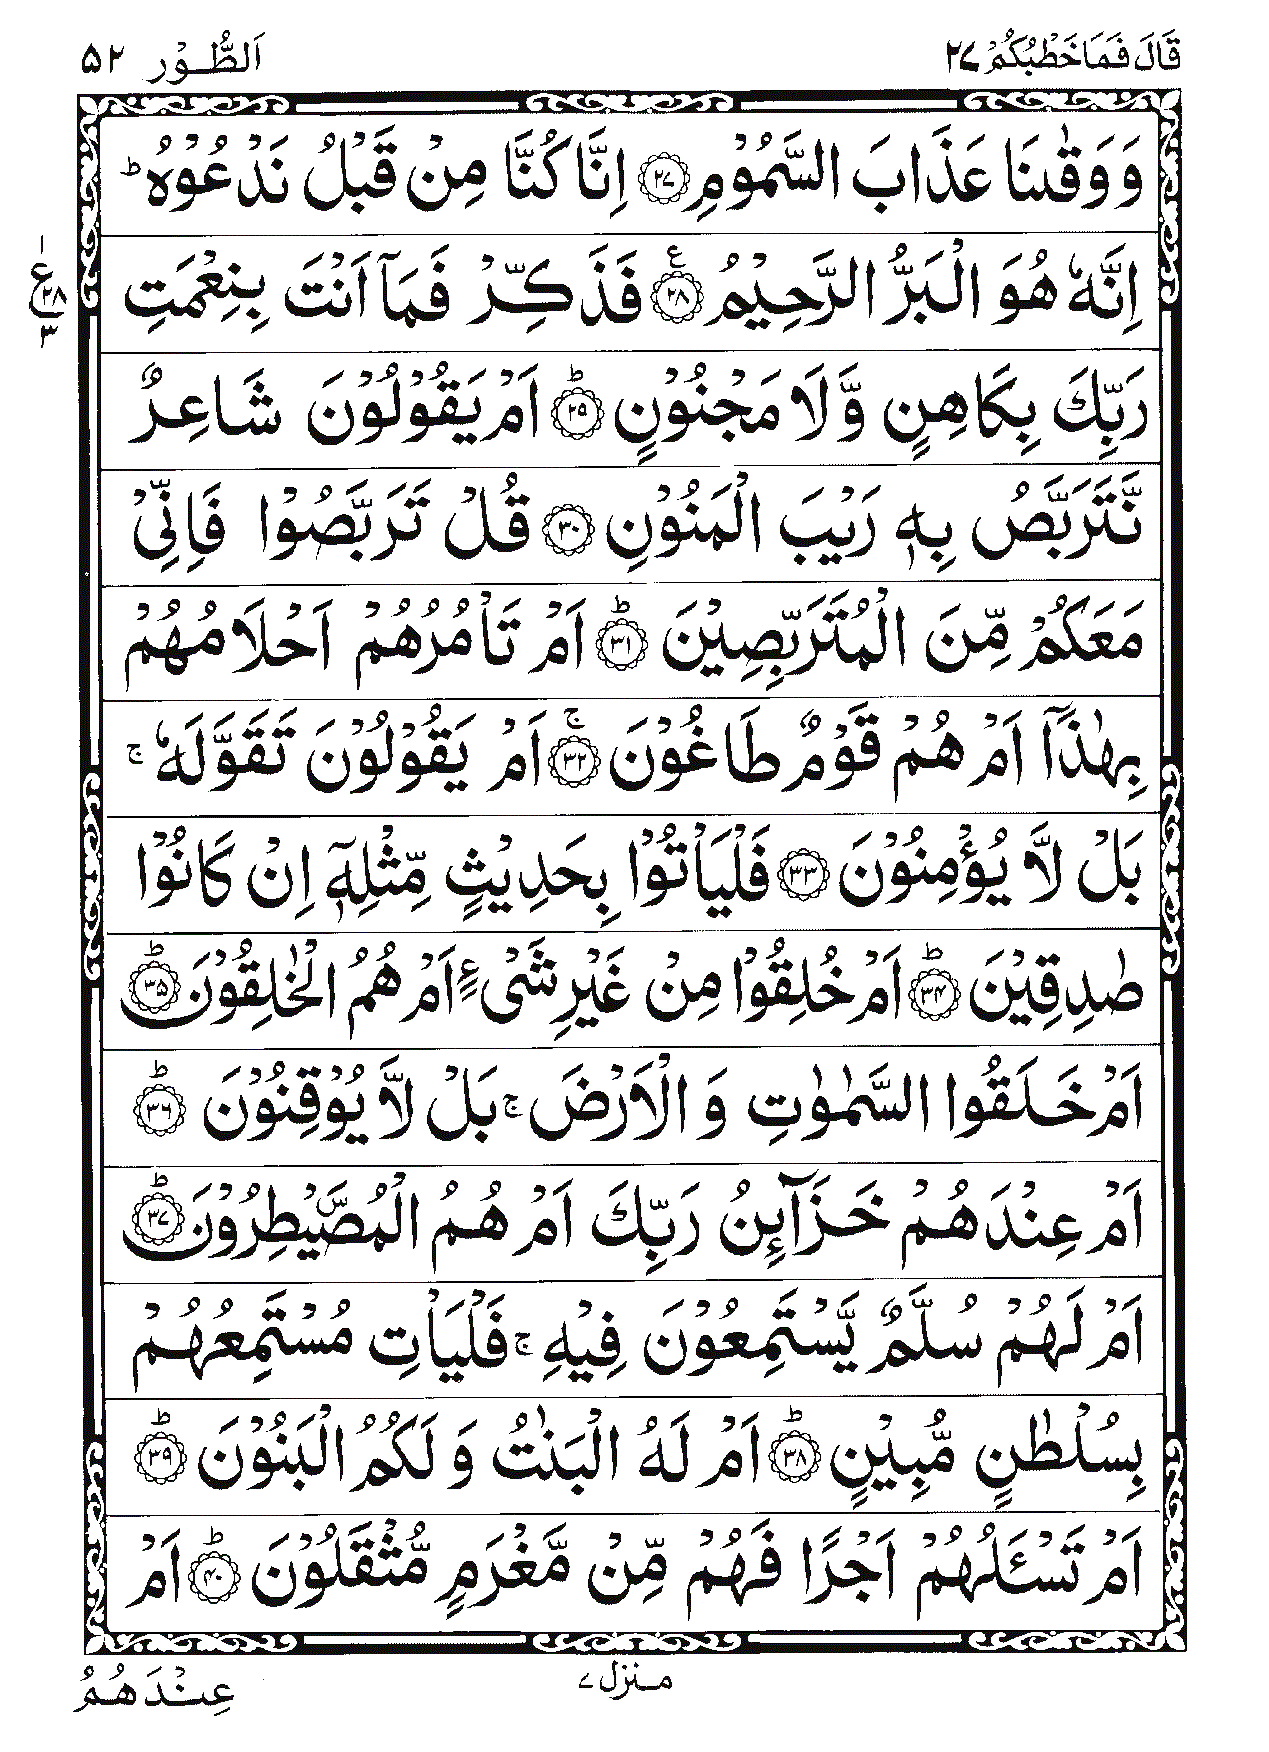 قَالَ فَمَا خَطْبُكُمْ ۲۷
اَلطُّوْر ۵۲
وَ وَقٰىنَا عَذَابَ السَّمُوْمِ ﴿۲۷﴾ اِنَّا كُنَّا مِنْ قَبْلُ نَدْعُوْهُ ؕ
اِنَّهٗ هُوَ الْبَرُّ الرَّحِيْمُ ﴿۲۸﴾ ع فَذَكِّرْ فَمَاۤ اَنْتَ بِنِعْمَتِ
۱ ع ۲۸ ۳
رَبِّكَ بِكَاهِنٍ وَّ لَا مَجْنُوْنٍ ﴿۲۹﴾ ؕ اَمْ يَقُوْلُوْنَ شَاعِرٌ
نَّتَرَبَّصُ بِهٖ رَيْبَ الْمَنُوْنِ ﴿۳۰﴾ قُلْ تَرَبَّصُوْا فَاِنِّيْ
مَعَكُمْ مِّنَ الْمُتَرَبِّصِيْنَ ﴿۳۱﴾ ؕ اَمْ تَاْمُرُهُمْ اَحْلَامُهُمْ
بِهٰذَاۤ اَمْ هُمْ قَوْمٌ طَاغُوْنَ ﴿۳۲﴾ ۚ اَمْ يَقُوْلُوْنَ تَقَوَّلَهٗ ۚ
بَلْ لَّا يُؤْمِنُوْنَ ﴿۳۳﴾ فَلْيَاْتُوْا بِحَدِيْثٍ مِّثْلِهٖۤ اِنْ كَانُوْا
صٰدِقِيْنَ ﴿۳۴﴾ ؕ اَمْ خُلِقُوْا مِنْ غَيْرِ شَيْءٍ اَمْ هُمُ الْخٰلِقُوْنَ ﴿۳۵﴾ ؕ
اَمْ خَلَقُوا السَّمٰوٰتِ وَ الْاَرْضَ ۚ بَلْ لَّا يُوْقِنُوْنَ ﴿۳۶﴾ ؕ
اَمْ عِنْدَهُمْ خَزَآئِنُ رَبِّكَ اَمْ هُمُ الْمُصَۜيْطِرُوْنَ ﴿۳۷﴾ ؕ
اَمْ لَهُمْ سُلَّمٌ يَّسْتَمِعُوْنَ فِيْهِ ۚ فَلْيَاْتِ مُسْتَمِعُهُمْ
بِسُلْطٰنٍ مُّبِيْنٍ ﴿۳۸﴾ ؕ اَمْ لَهُ الْبَنٰتُ وَ لَكُمُ الْبَنُوْنَ ﴿۳۹﴾ ؕ
اَمْ تَسْـَٔلُهُمْ اَجْرًا فَهُمْ مِّنْ مَّغْرَمٍ مُّثْقَلُوْنَ ﴿۴۰﴾ ؕ اَمْ
منزل ۷
عِنْدَهُمُ